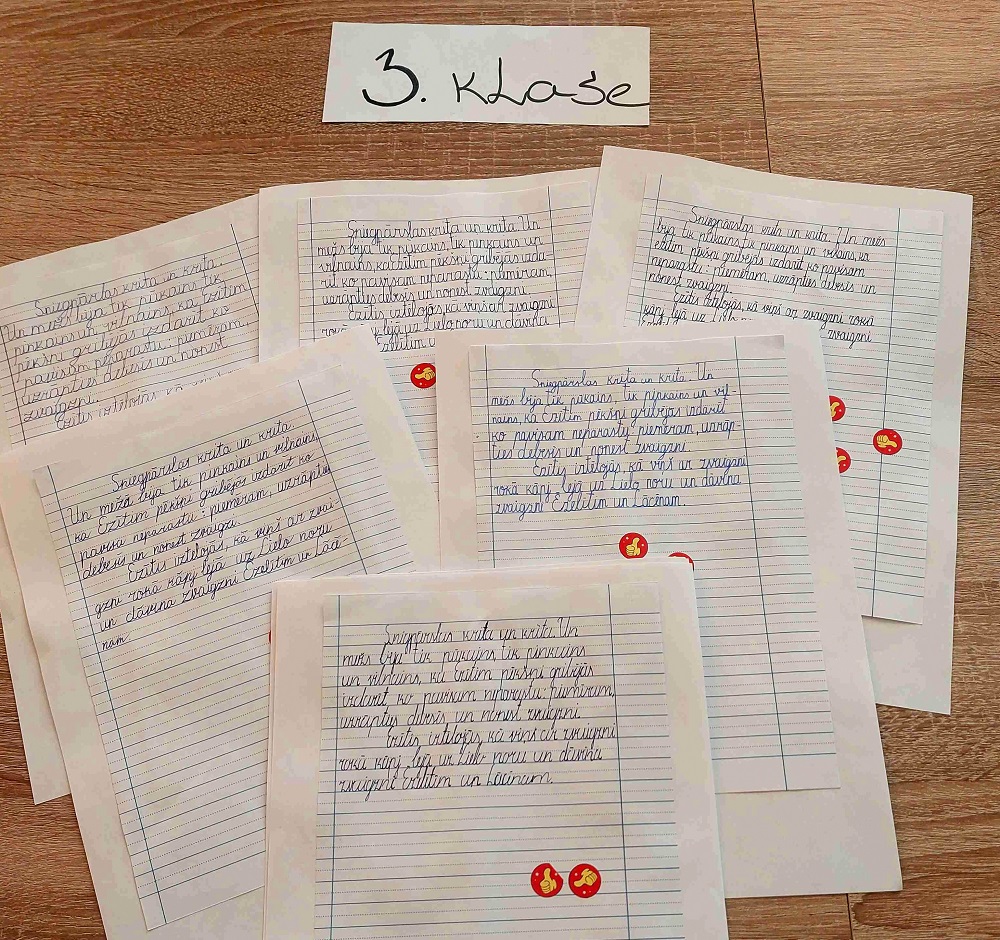 3. KLase
Sniegpārslas krita un krita.
Un mežs bija tik pūkains, tik
pinkains un vilnains, ka Ezītim
pēkšņi gribējās izdarīt ko
pavisam neparastu: piemēram,
uzrāpties debesīs un nonest
zvaigzni.
Ezītis iztēlojās, kā viņš
Sniegpārslas krita un krita. Un
mežs bija tik pūkains, tik pinkains un
vilnains, ka Ezītim pēkšņi gribējās izda-
rīt ko pavisam neparastu: piemēram,
uzrāpties debesīs un nonest zvaigzni.
Ezītis iztēlojās, kā viņš ar zvaigzni
rokā kāpj lejā uz Lielo noru un dāvina
Ezelītim u
Sniegpārslas krita un krita. Un mežs
bija tik pūkains, tik pinkains un vilnains, ka
ezītim pēkšņi gribējās izdarīt ko pavisam
neparastu: piemēram, uzrāpties debesīs un
nonest zvaigzni.
Ezītis iztēlojās, kā viņš ar zvaigzni rokā
kāpj lejā uz Lielo n zvaigzni
Sniegpārslas krita un krita
Un mežā bija tik pinkains un vilnains,
ka Ezītim pēkšņi gribējās izdarīt ko
pavisa neparastu: piemēram, uzrāpties
debesīs un nonest zvaigzi.
Ezītis iztelojās, kā viņš ar zvai-
gzni rokā kāpj lejā uz Lielo noru
un dāvina zvaigzni Ezelītim un Lācē
nam.
Sniegpārslas krita un krita. Un
mežs bija tik pūkains, tik pinkains un vil-
nains, ka Ezītim pēkšņi gribējās izdarīt
ko pavisam neparastu: piemēram, uzrāp-
ties debesīs un nonest zvaigzni.
Ezītis iztēlojās, kā viņš ar zvaigzni
rokā kāpj lejā uz Lielo noru un dāvina
zvaigzni Ezelītim un Lācēnam.
Sniegpārslas krita un krita. Un
mežs bija tik pūkains, tik pinkains
un vilnains, ka Ezītim pēkšņi gribējās
izdarīt ko pavisam neparastu: piemēram,
uzrāpties debesīs un nonest zvaigzni
Ezītis iztēlojās, kā viņš ar zvaigzni
rokā kāpj lejā uz Lielo noru un dāvina
zvaigzni Ezelītim un Lācēnam.